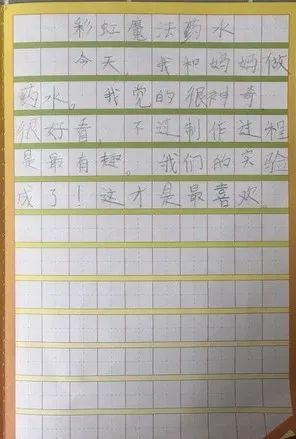 彩虹魔法药水
今天，我和妈妈做
药水。我觉的很神奇，
很好看，不过制作过程
是最有趣。我们的实验
成了！这才是最喜欢。